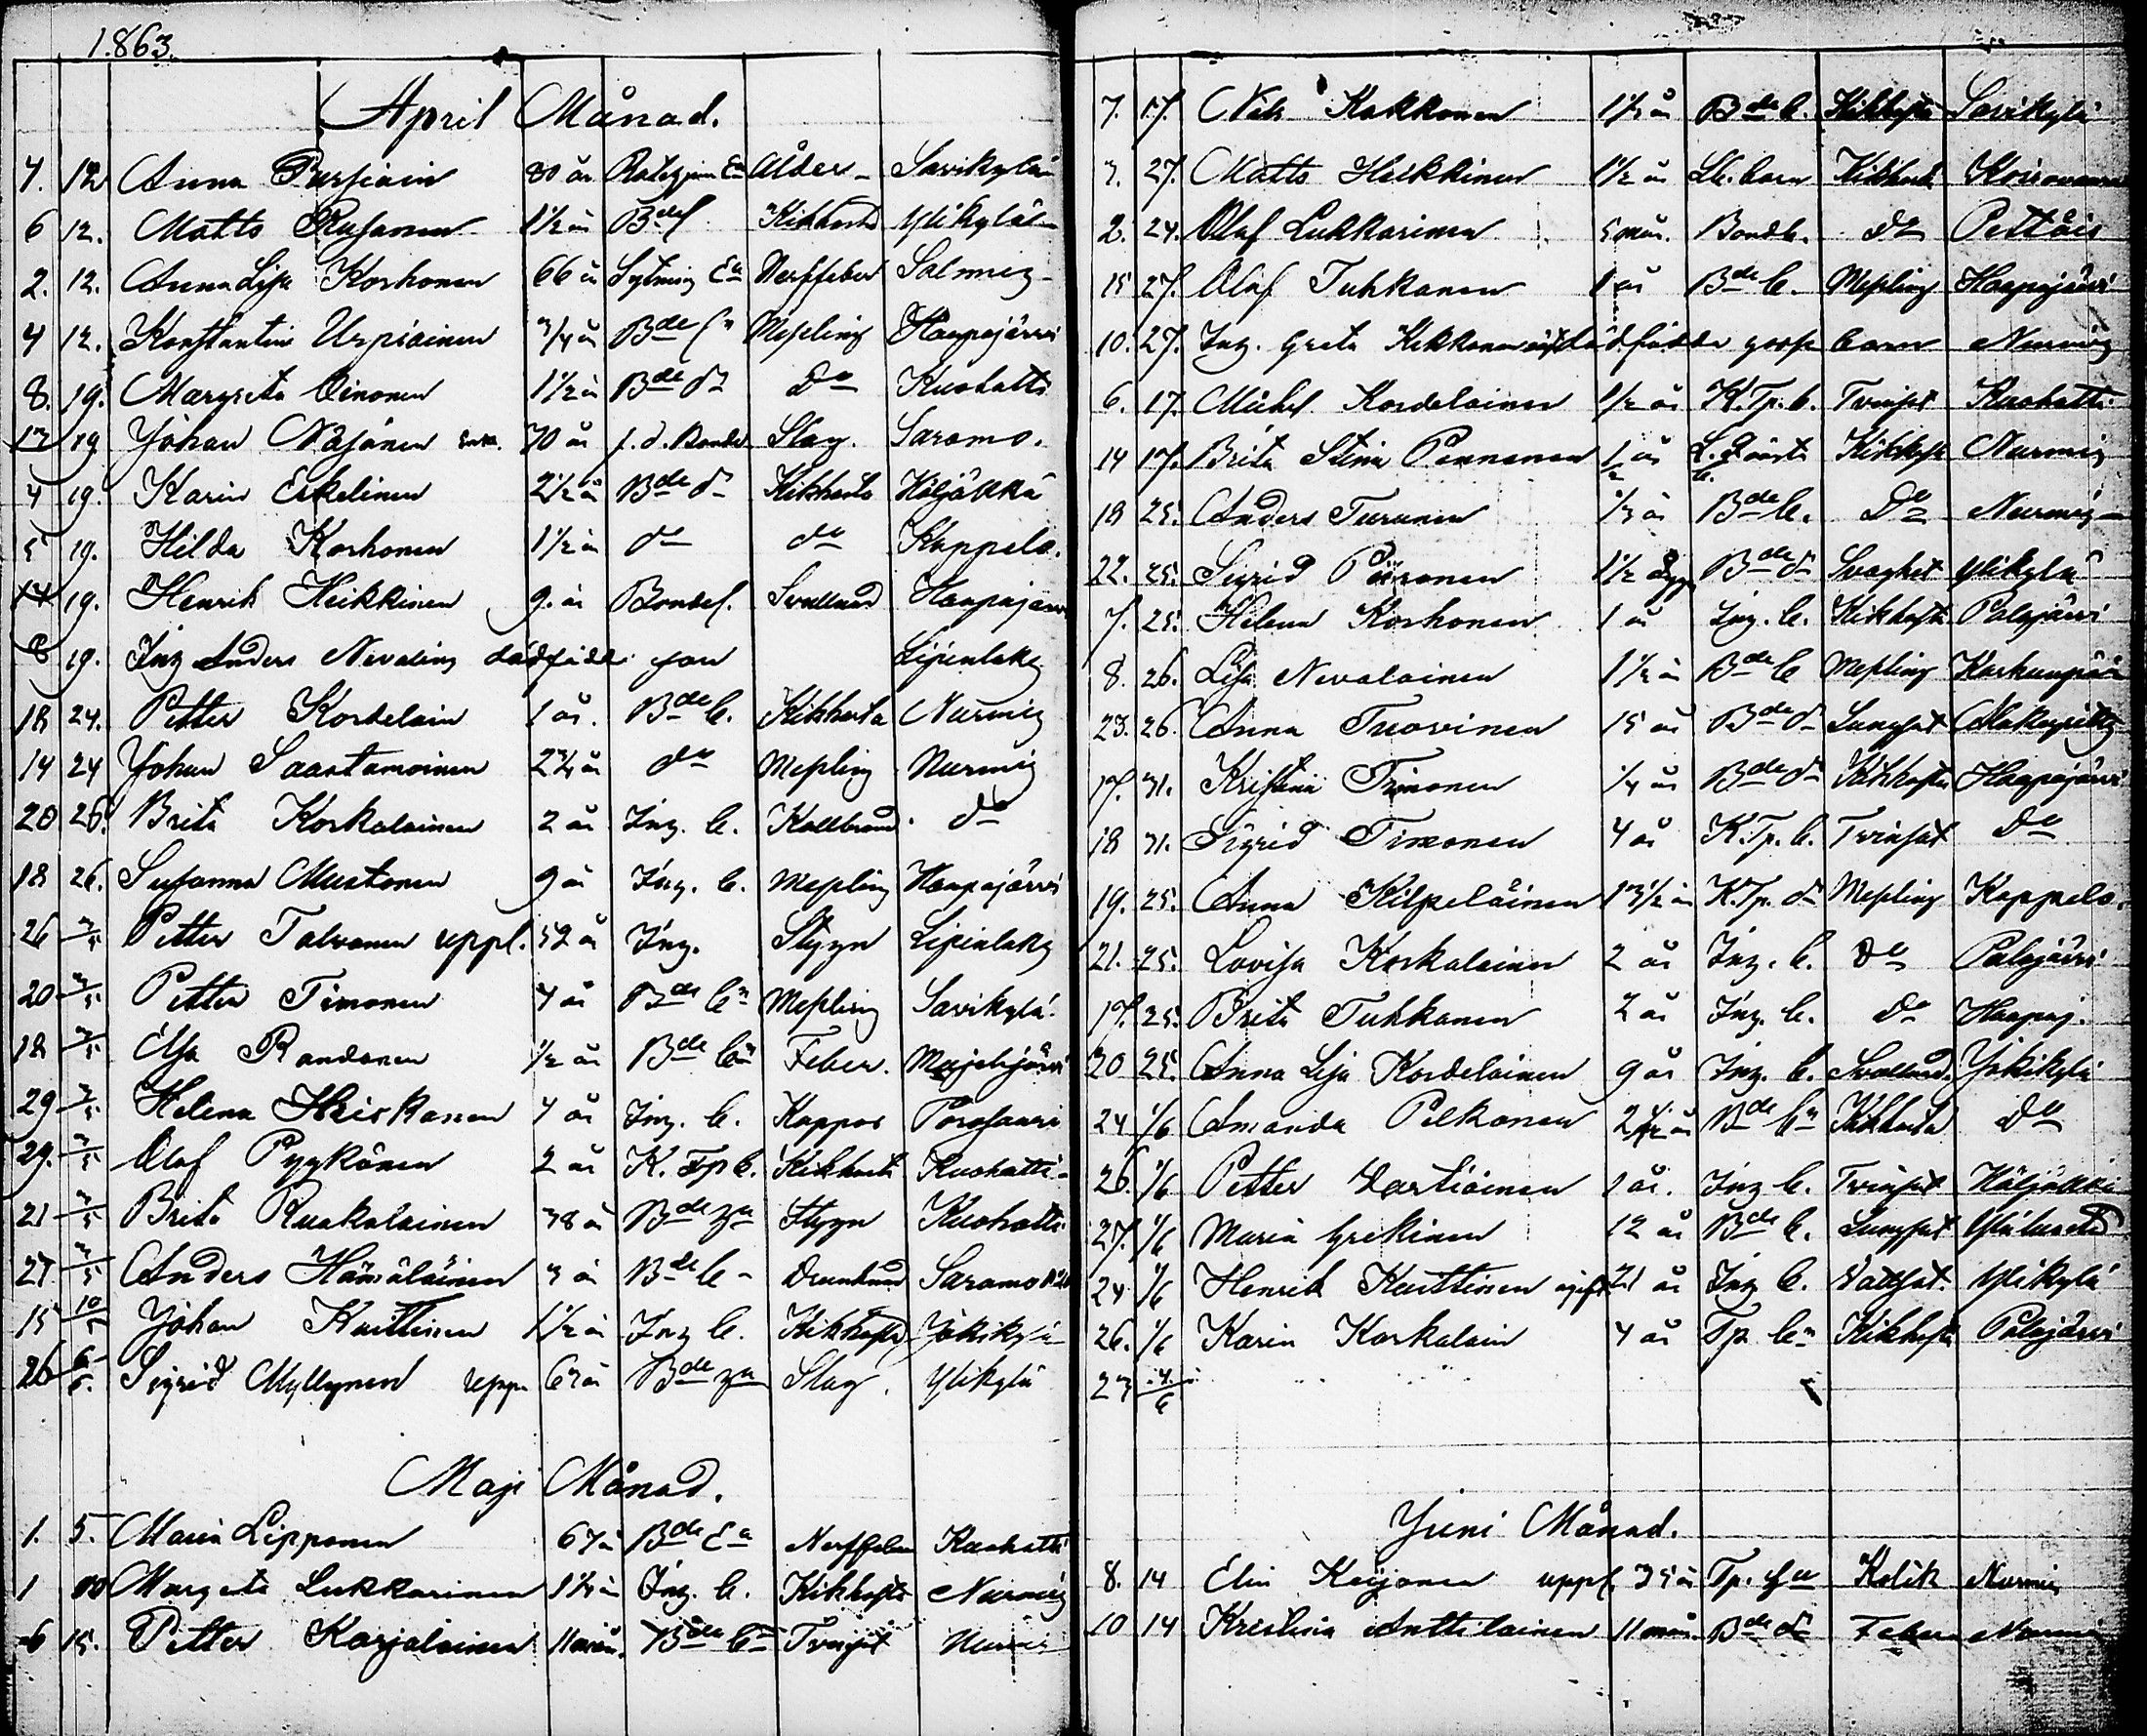 1863.
April Månad.
7. 12 Anna Pursiain 80 år Enka Ålder Savikylä
6 12. Matts Rusanen 1 1/2 år Bde Kikhosta Ylikylä
2. 12. Anna Lisa Korhonen 66 år Sytning Ea Nerffeber Salmi
4 12. Konstantin Urpiainen 3/4 år Bde Messling Haapajärvi
8. 19. Margreta Oinonen 1 1/2 år Bde do do Kuohatti
19 Johan Näsänen Enkl. 70 år f.d. Bonde Slag. Saramo.
4 19. Karin Eskelinen 2 1/2 år Bde do Kikhosta Höljäkkä
5 19. Hilda Korhonen 1 1/2 år do do Kappelo.
14 19. Henrik Heikkinen 9. år Bondes. Svullnad Haapajärvi
8 19. Ing Anders Nevalains dödfödde son Lipinlaks
18 24. Petter Kordelain 1 år. Bde b. Kikhosta Nurmis
14 24 Johan Saastamoinen 2 3/4 år do Messling Nurmis
20 26. Brita Korkalainen 2 år Ing. b. Kallbrand do
18 26. Susanna Mustonen 9 år Ing. b. Messling Haapajärvi
26 3/5 Petter Tolvanen uppl. 52 år Ing. Styng Lipinlaks
20 3/5 Petter Timonen 4 år Bde bn Messling Savikylä
18 3/5 Elsa Randonen 1/2 år Bde bn Feber. Mujejärvi
29 3/5 Helena Heiskanen 4 år Ing. b. Koppor Porosaari
29. 3/5 Olof Pyykönen 2 år K. Tp b. Kikhosta Kuohatti
21 3/5 Brita Ruokolainen 38 år Bde Styng Kuohatti
27 3/5 Anders Hämäläinen 3 år Bde b Drunknad Saramo
15 10/5 Johan Kuittinen 1 1/2 år Ing b. Kikhosta Jokikylä
26 6. Sigrid Myllynen uppl 63 år Bde Slag. Ylikylä
Maji Månad.
1. 5. Maria Lipponen 67 år Bde Ea Nerffeber Kuohatti
1 10 Margeta Lukkarinen 1 1/4 år Ing. b. Kikhosta Nurmis
6 15. Petter Karjalainen 11 mån. Bde bn Tvinsot Nurmis
7. 17. Nils Kokkonen 1 1/2 år Bde b. Kikhosta Savikylä
3. 27. Matts Heikkinen 1 1/2 år barn Kikhosta Koirovaara
2. 24. Olof Lukkarinen 5 mån. Bondb. do Pettäis
15 27. Olof Tuhkanen 1 år Bde b. Messling Haapajärvi
10. 27. Ing. Greta Kekkonen oäkta dödfödda goss barn Nurmis
6. 17. Michel Kordelainen 1/2 år K. Tp. b. Tvinsot Kuohatti
14 17. Brita Stina Pennanen 1/2 år Kikhosta Nurmis
18 25. Anders Turunen 1/3 år Bde b. Do Nurmis
22. 25. Sigrid Piironen 1 1/2 dygn Bde do Svaghet Ylikylä
7. 25. Helena Korhonen 1 år Ing. b. Kikhosta Palojärvi
8. 26. Lisa Nevalainen 1 1/2 år Bde b Messling
23. 26. Anna Tuovinen 15 år Bde do Lungsot
17. 31. Kristina Timonen 1/4 år Bde do Kikhosta Haapajärvi
18 31. Sigrid Timonen 4 år K. Tp. b. Tvinsot Do
19. 25. Anna Kilpeläinen år K. Tp. do Messling Kappelo.
21. 25. Lovisa Korkalainen 2 år Ing. b. Do Palojärvi
19. 25. Brita Tuhkanen 2 år Ing. b. Do Haapaj.
20 25. Anna Lisa Kordelainen 9 år Ing. b. Svullnad Jokikylä
24 1/6 Amanda Pelkonen 2 år Bde bn Kikhosta Do
26. 1/6 Petter Vartiainen 1 år. Ing b. Tvinsot Höljäkkä
27. 1/6 Maria Grekinen 12 år Bde b. Lungsot
24. 1/6 Henrik Kuittinen ogift 21 år Ing b. Vattsot. Ylikylä
26. 1/6 Karin Korkalain 4 år Tp bn Kikhosta Palojärvi
23 4/6
Juni Månad.
8. 14 Elin Keijonen uppl 35 år Tp. Kolik Nurmis
10 14 Kristina Anttilainen 11 mån. Bde do Feber Nurmis